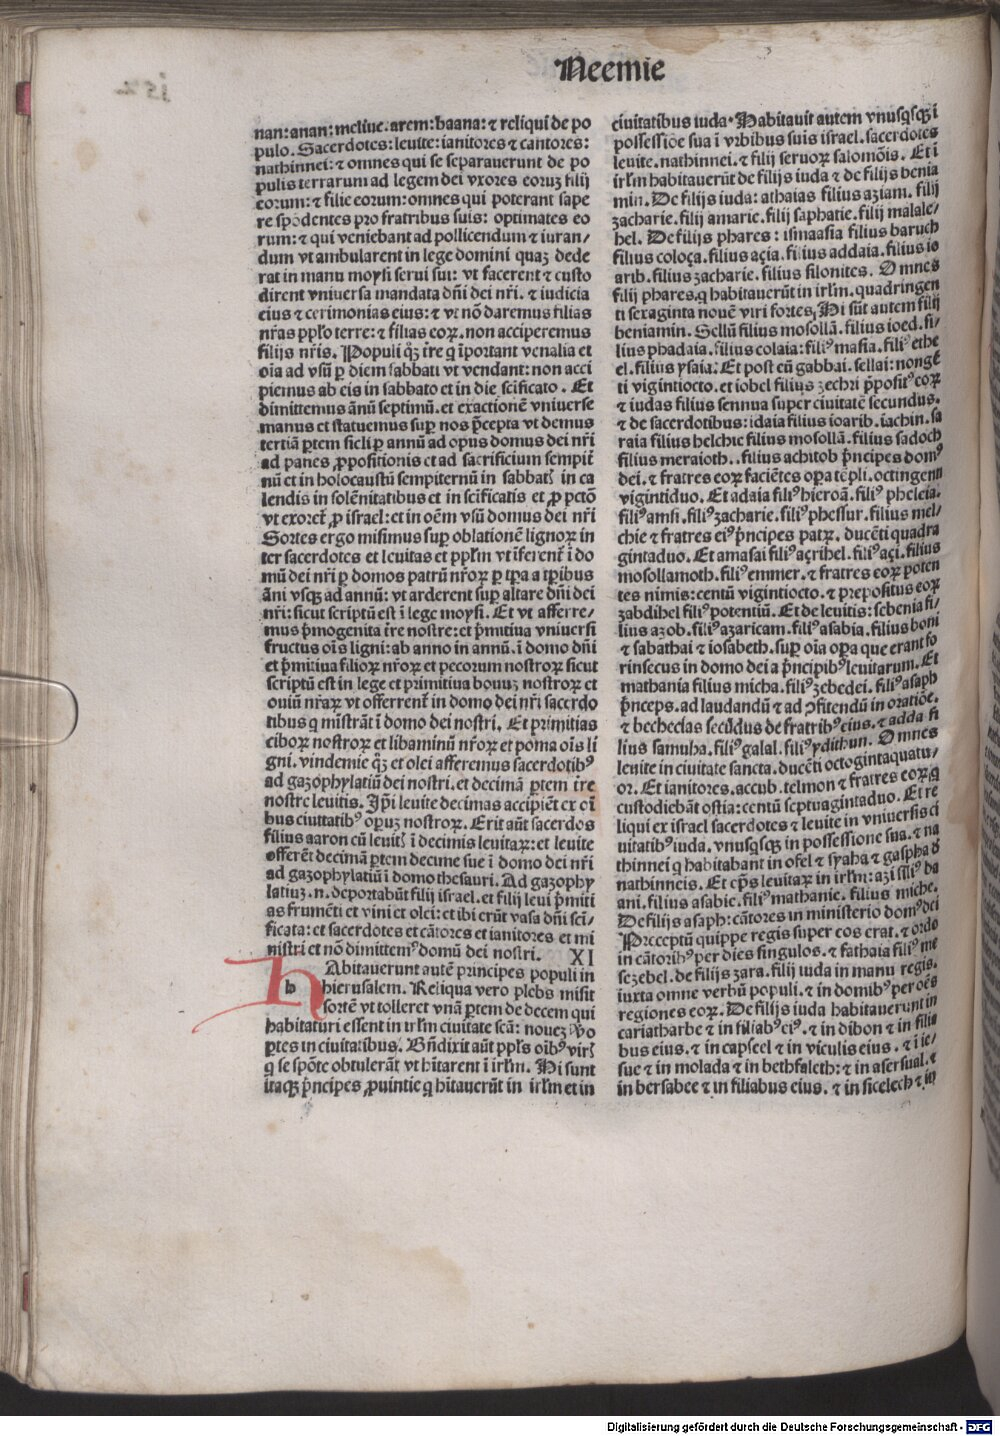 Neemie
nan:anan:meliue.arem:baana:⁊ reliqui de po
pulo. Sacerdotes:leuite:ianitores ⁊ cantores:
nathinnei:⁊ omnes qui se separauerunt de po
pulis terrarum ad legem dei vxores eoruꝫ filij
eorum:⁊ filie eorum:omnes qui poterant sape
re spōdentes pro fratribus suis: optimates eo
rum:⁊ qui veniebant ad pollicendum ⁊ iuran/
dum vt ambularent in lege domini quaꝫ dede
rat in manu moysi serui sui: vt facerent ⁊ custo
dirent vniuersa mandata dñi dei nr̄i. ⁊ iudicia
eius ⁊ cerimonias eius:⁊ vt nō daremus filias
nr̄as pp̄lo terre: ⁊ filias eoꝝ. non acciperemus
filijs nr̄is. Populi qꝫ tr̄e q īportant venalia et
oīa ad vsū ꝑ diem sabbati vt vendant: non acci
piemus ab eis in sabbato et in die sc̄ificato. Et
dimittemus ānū septimū. et exactionē vniuerse
manus et statuemus suꝑ nos p̄cepta vt demus
tertiā ꝑtem sicli ꝑ annū ad opus domus dei nr̄i
ad panes ꝓpositionis et ad sacrificium sempit̄
nū et in holocaustū sempiternū in sabbatꝭ in ca
lendis in solēnitatibus et in sc̄ificatis et ꝓ pctō
vt exoret̄ ꝓ israel: et in oēm vsū domus dei nr̄i
Sortes ergo misimus suꝑ oblationē lignoꝝ in
ter sacerdotes et leuitas et pp̄lm vt īferent̄ ī do
mū dei nr̄i ꝑ domos patrū nr̄oꝝ ꝑ tꝑa a tꝑibus
āni vsqꝫ ad annū: vt arderent suꝑ altare dñi dei
nr̄i: sicut scriptū est ī lege moysi. Et vt afferre/
mus p̄mogenita tr̄e nostre: et p̄mitiua vniuersi
fructus oīs ligni: ab anno in annū. ī domo dñi
et p̄mitiua filioꝝ nr̄oꝝ et pecorum nostroꝝ sicut
scriptū est in lege et primitiua bouuꝫ nostroꝝ et
ouiū nr̄aꝝ vt offerrent̄ in domo dei nr̄i sacerdo
tibus q mīstrāt ī domo dei nostri. Et primitias
ciboꝝ nostroꝝ et libaminū nr̄oꝝ et poma oīs li
gni. vindemie qꝫ et olei afferemus sacerdotibꝰ
ad gazophylatiū dei nostri. et decimā ꝑtem tr̄e
nostre leuitis. Ip̄i leuite decimas accipiēt ex oī
bus ciuitatibꝰ oꝑuꝫ nostroꝝ. Erit aūt sacerdos
filius aaron cū leuitꝭ ī decimis leuitaꝝ: et leuite
offerēt decimā ꝑtem decime sue ī domo dei nr̄i
ad gazophylatiū ī domo thesauri. Ad gazophy
latiuꝫ.n. deportabūt filij israel. et filij leui p̄miti
as frumēti et vini et olei: et ibi erūt vasa dñi scī/
ficata: et sacerdotes et cātores et ianitores et mi
nistri et nō dimittemꝰ domū dei nostri. XI
h Abitauerunt autē principes populi in
hierusalem. Reliqua vero plebs misit
sortē vt tolleret vnā ꝑtem de decem qui
habitaturi essent in irl̄m ciuitate scā: noueꝫ vo
ꝑtes in ciuitatibus. Bn̄dixit aūt pp̄ls oībꝰ virꝭ
q se spōte obtulerāt vt hītarent ī irl̄m. Hi sunt
itaqꝫ p̄ncipes ꝓuintie q hītauerūt in irl̄m et in
ciuitatibus iuda. Habitauit autem vnusqsqꝫ ī
possessiōe sua ī vrbibus suis israel. sacerdotes
leuite. nathinnei. ⁊ filij seruoꝝ salomōis. Et ī
irl̄m habitauerūt de filijs iuda ⁊ de filijs benia
min. De filijs iuda: athaias filius aziam. filij
zacharie. filij amarie. filij saphatie. filij malale/
hel. De filijs phares: ismaasia filius baruch
filius coloça. filius açia. filius addaia. filius io
arib. filius zacharie. filius silonites. Omnes
filij phares. q habitauerūt in irl̄m. quadringen
ti sexaginta nouē viri fortes. Hi sūt autem filij
beniamin. Sellū filius mosollā. filius ioed. fi/
lius phadaia. filius colaia: filiꝰ masia. filiꝰ ethe
el. filius ysaia: Et post eū gabbai. sellai: nongē
ti vigintiocto. et iobel filius zechri p̄positꝰ eoꝝ
⁊ iudas filius sennua super ciuitatē secundus.
⁊ de sacerdotibus: idaia filius ioarib. iachin. sa
raia filius helchie filius mosollā. filius sadoch
filius meraioth.. filius achitob p̄ncipes domꝰ
dei. ⁊ fratres eoꝝ faciētes oꝑa tēpli. octingenti
vigintiduo. Et adaia filiꝰ hieroā. filiꝰ pheleia.
filiꝰ amsi. filiꝰ zacharie. filiꝰ phessur. filius mel/
chie ⁊ fratres eiꝰ p̄ncipes patꝝ. ducēti quadra
gintaduo. Et amasai filiꝰ açrihel. filiꝰ açi. filius
mosollamoth. filiꝰ emmer. ⁊ fratres eoꝝ poten
tes nimis: centū vigintiocto. ⁊ prepositus eoꝝ
zabdihel filiꝰ potentiū. Et de leuitis: sebenia fi/
lius azob. filiꝰ azaricam. filiꝰ asabia. filius boni
⁊ sabathai ⁊ iosabeth. suꝑ oīa oꝑa que erant fo
rinsecus in domo dei a p̄ncipibꝰ leuitarum. Et
mathania filius micha. filiꝰ zebedei. filiꝰ asaph
p̄nceps. ad laudandū ⁊ ad ꝯfitendū in oratiōe.
⁊ bechecias secūdus de fratribꝰ eius. ⁊ adda fi
lius samuha. filiꝰ galal. filiꝰ ydithun. Omnes
leuite in ciuitate sancta. ducēti octogintaquatu/
or. Et ianitores. accub. telmon ⁊ fratres eoꝝ q
custodiebāt ostia: centū septuagintaduo. Et re
liqui ex israel sacerdotes ⁊ leuite in vniuersis ci
uitatibꝰ iuda. vnusqsqꝫ in possessione sua. ⁊ na
thinnei q habitabant in ofel ⁊ syaha ⁊ gaspha d̄
nathinneis. Et ep̄s leuitaꝝ in irl̄m: azi filiꝰ ba
ani. filius asabie. filiꝰ mathanie. filius miche.
De filijs asaph: cātores in ministerio domꝰ dei
Preceptū quippe regis super eos erat. ⁊ ordo
in cātoribꝰ per dies singulos. ⁊ fathaia filiꝰ me
sezebel. de filijs zara. filij iuda in manu regis.
iuxta omne verbū populi. ⁊ in domibꝰ per oēs
regiones eoꝝ. De filijs iuda habitauerunt in
cariatharbe ⁊ in filiabꝰ eiꝰ. ⁊ in dibon ⁊ in filia
bus eius. ⁊ in capseel ⁊ in viculis eius. ⁊ ī ie/
sue ⁊ in molada ⁊ in bethfaleth: ⁊ in asersual. ⁊
in bersabee ⁊ in filiabus eius. ⁊ in sicelech ⁊ in
Digitalisierung gefördert durch die Deutsche Forschungsgemeinschaft - DFG